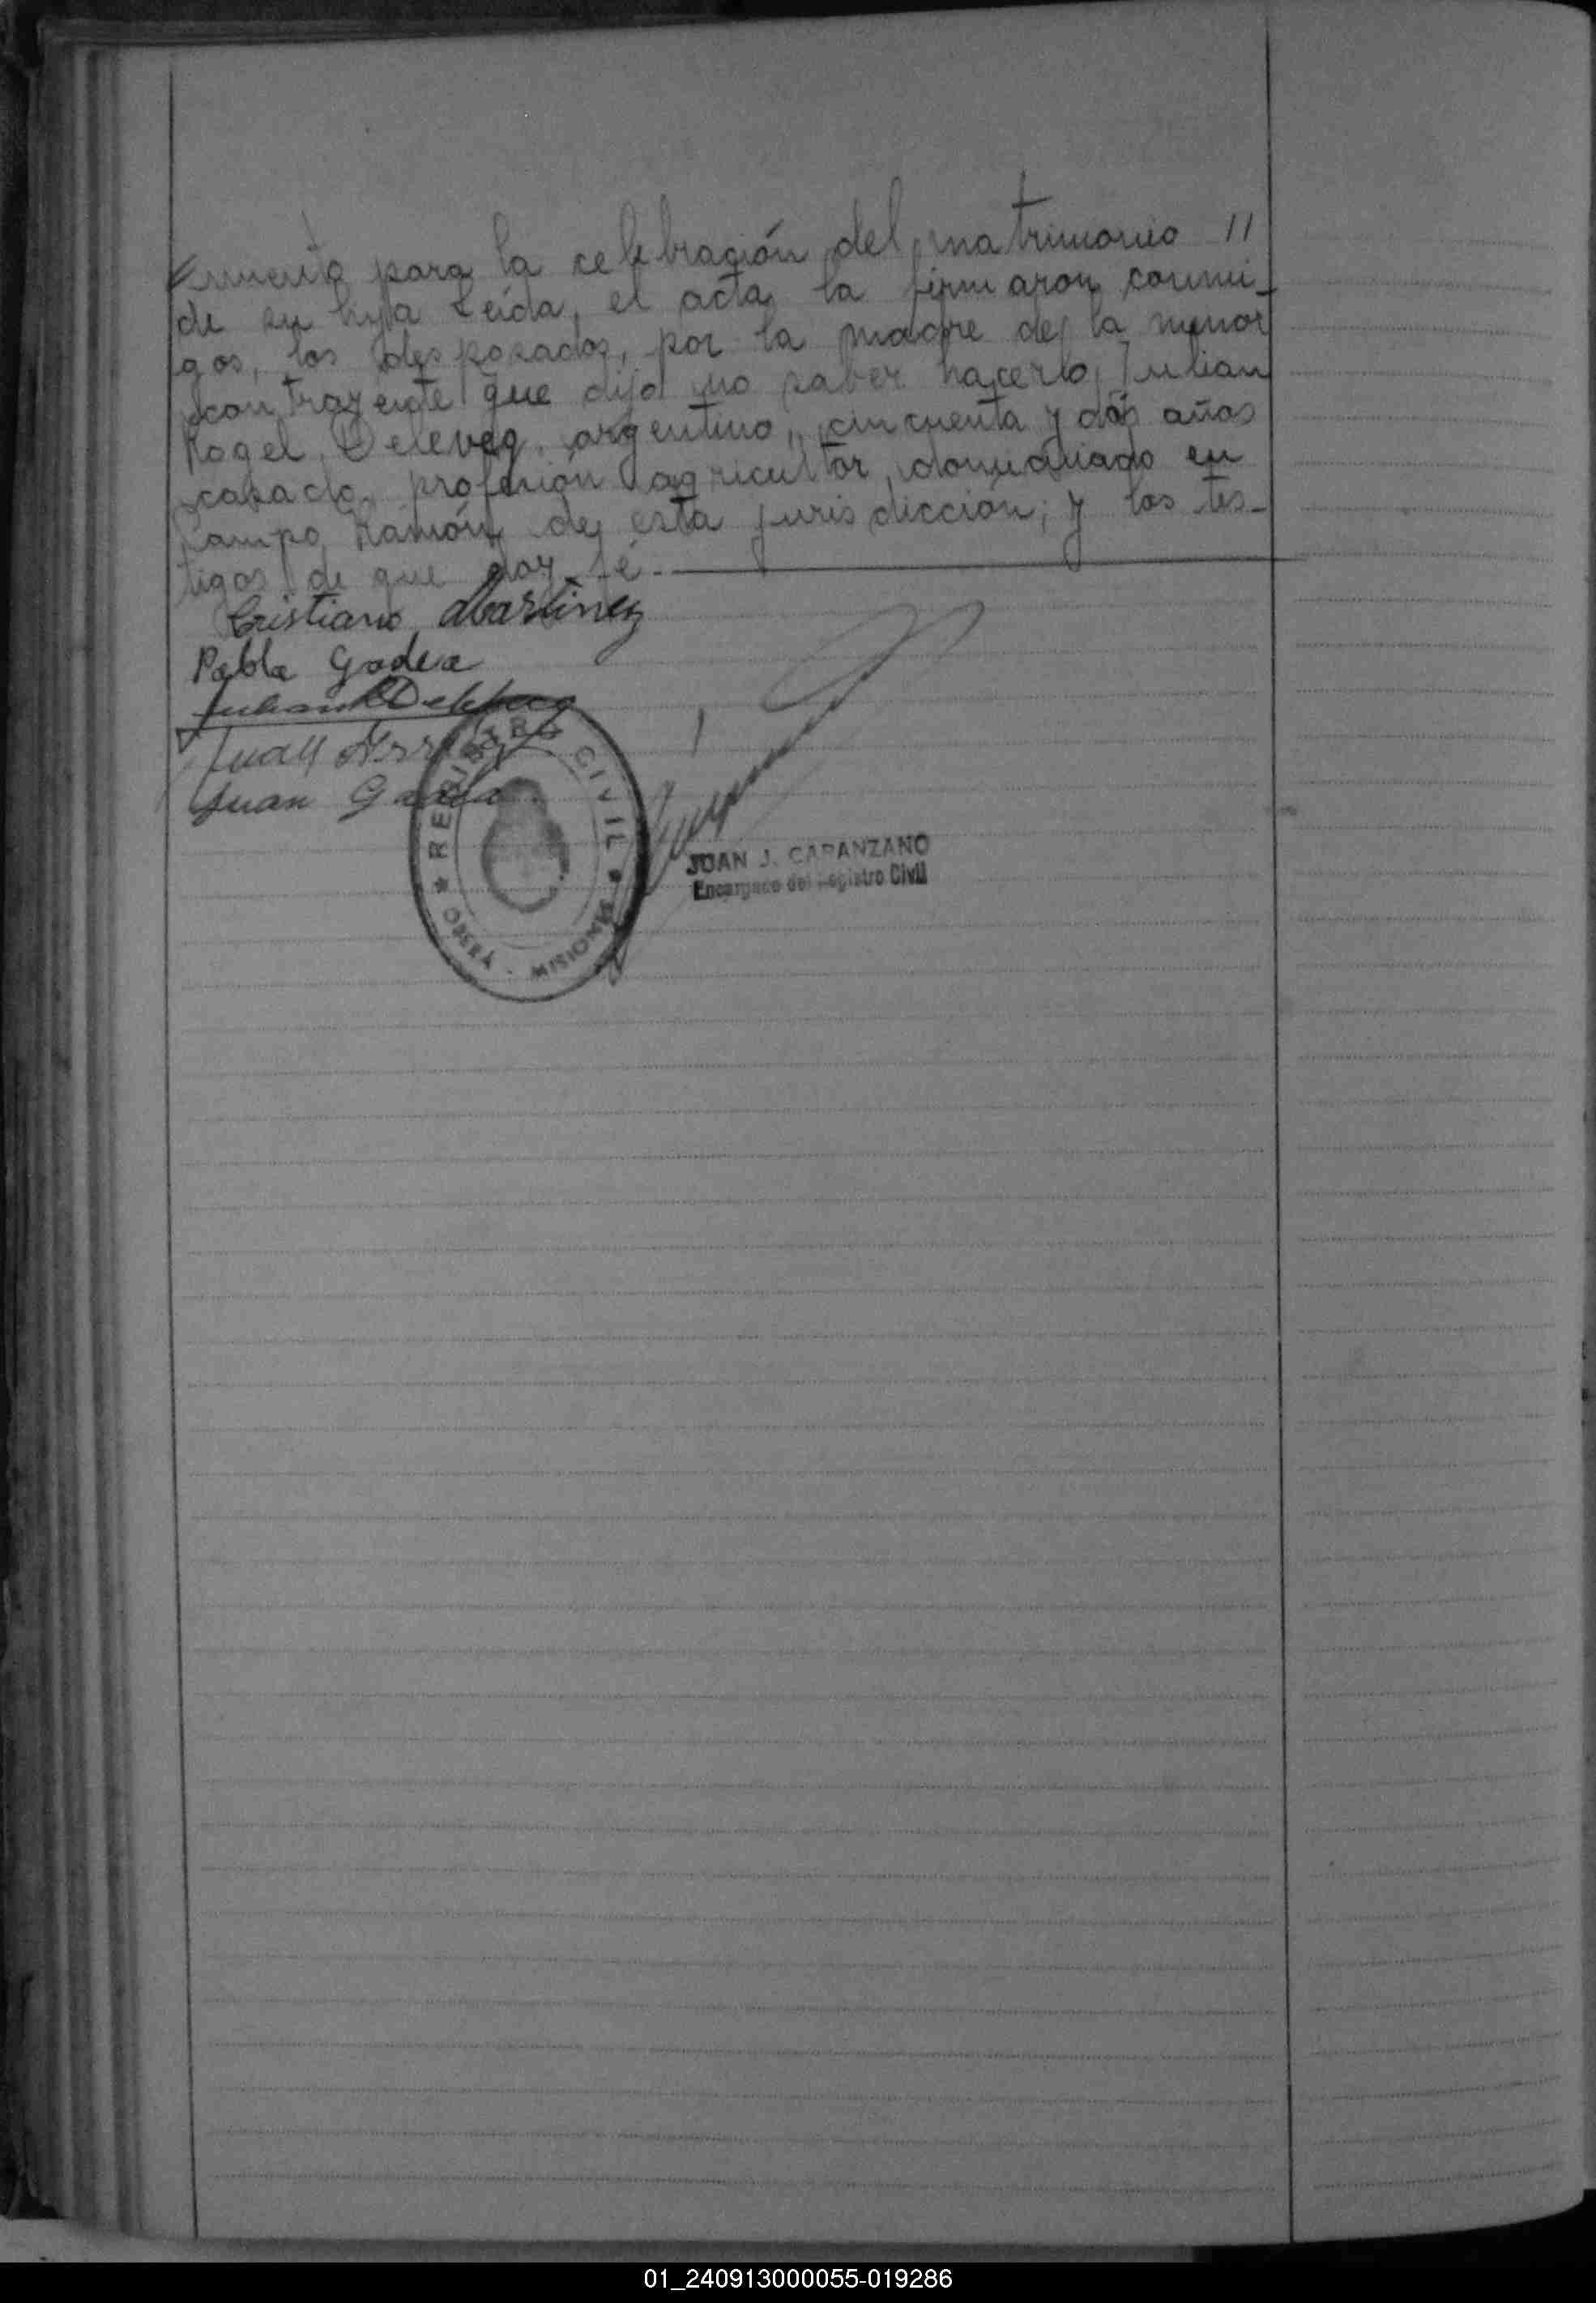 para la celebración del matrimonio //
de su hija Leída, el acta la firmaron conmi-
gos, los desposados, por la madre de la menor
contrayente que dijo no saber hacerlo, Julian
Rogel argentino, cincuenta y dos años
casado, profesión agricultor, domiciliado en
Campo Ramón de esta jurisdicción; y los tes-
tigos de que doy fé.
Cristiano Martinez
Pabla Gadea
Juan
Juan
REGISTRO CIVIL
OBERÁ - MISIONES
JUAN J. CARANZANO
Encargado del Registro Civil
01_240913000055-019286